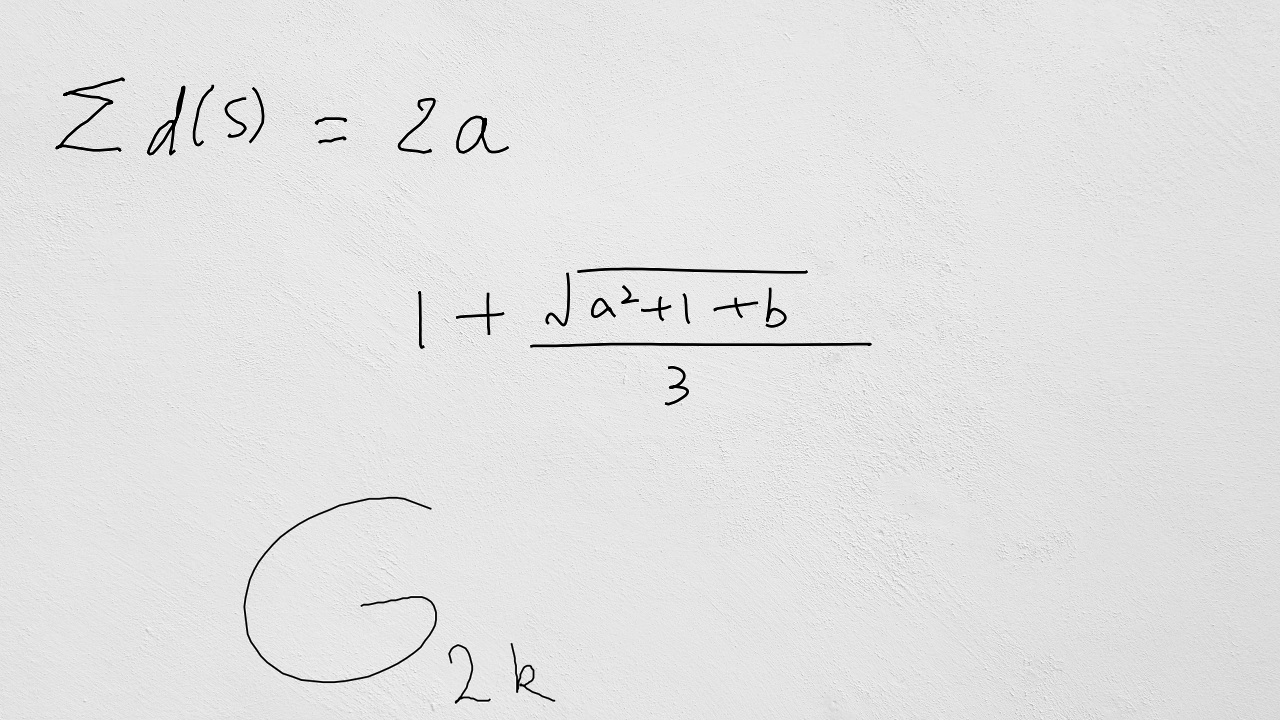 ∑ d(s) = 2a
1 + \frac{\sqrt{a^2+1+b}}{3}
G_{2k}